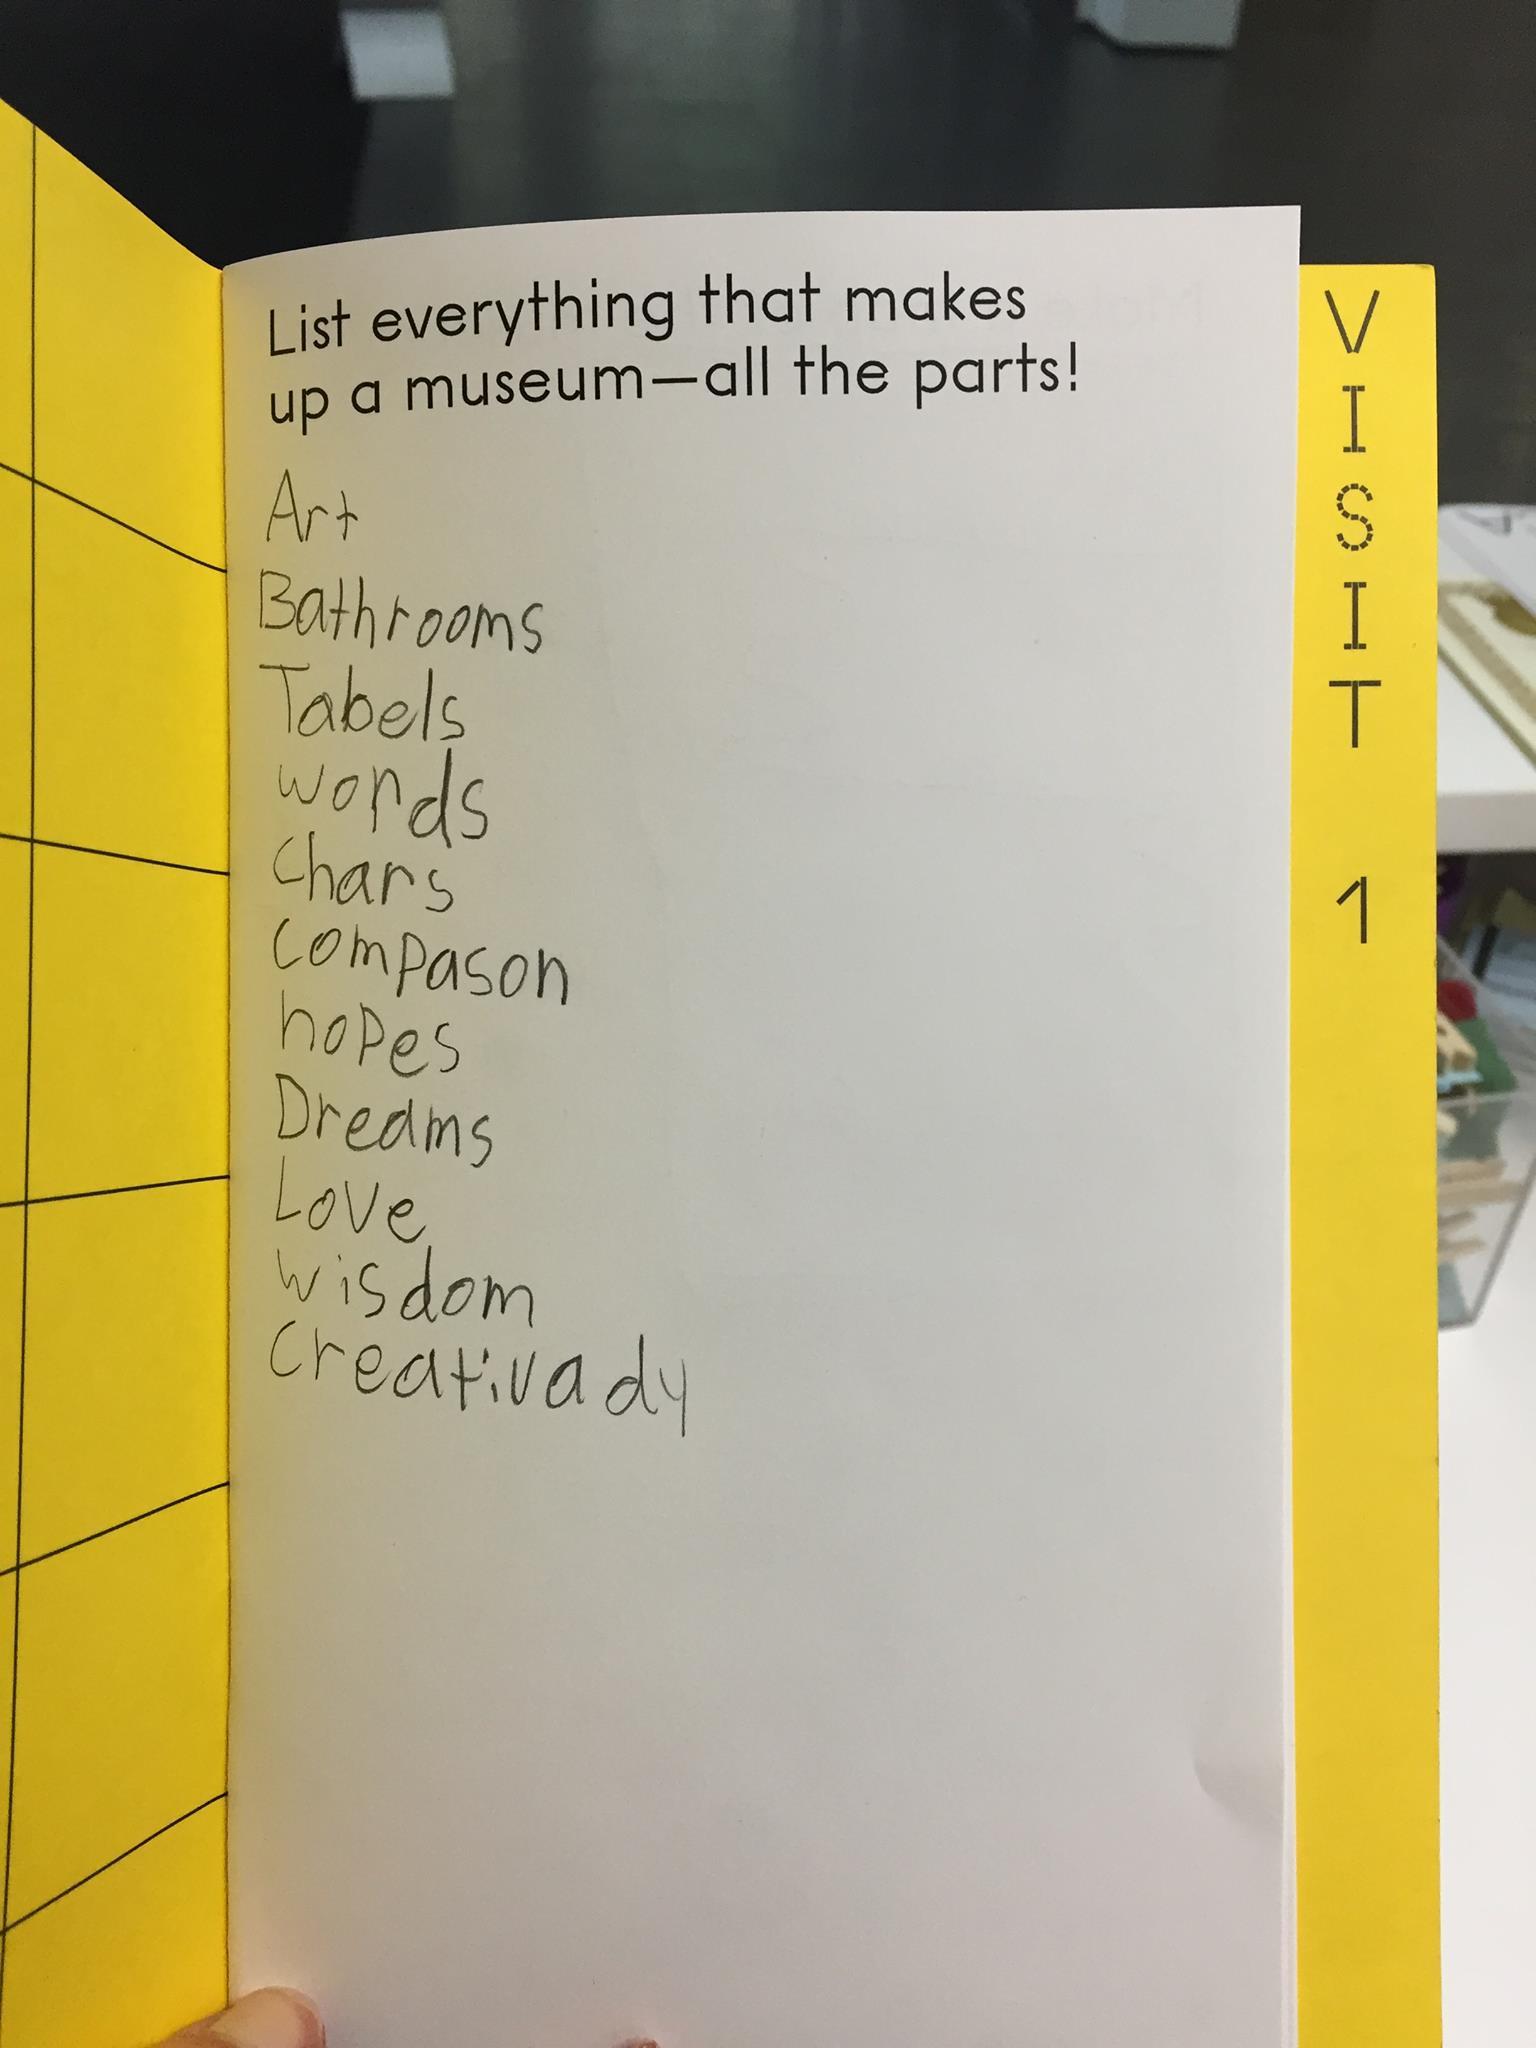 List everything that makes
up a museum—all the parts!
Art
Bathrooms
Tabels
words
Chars
Compason
hopes
Dreams
Love
Wisdom
Creativady
VISIT 1